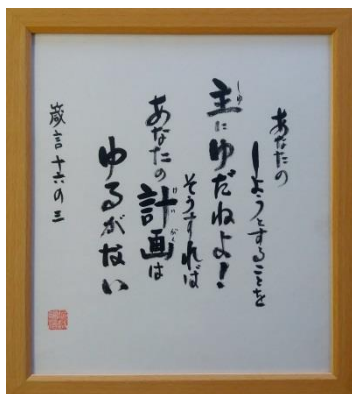 あなたの
しようとすることを
主にゆだねよ！
しゅ
そうすれば
あなたの計画は
けいかく
ゆるがない
箴言十六の三